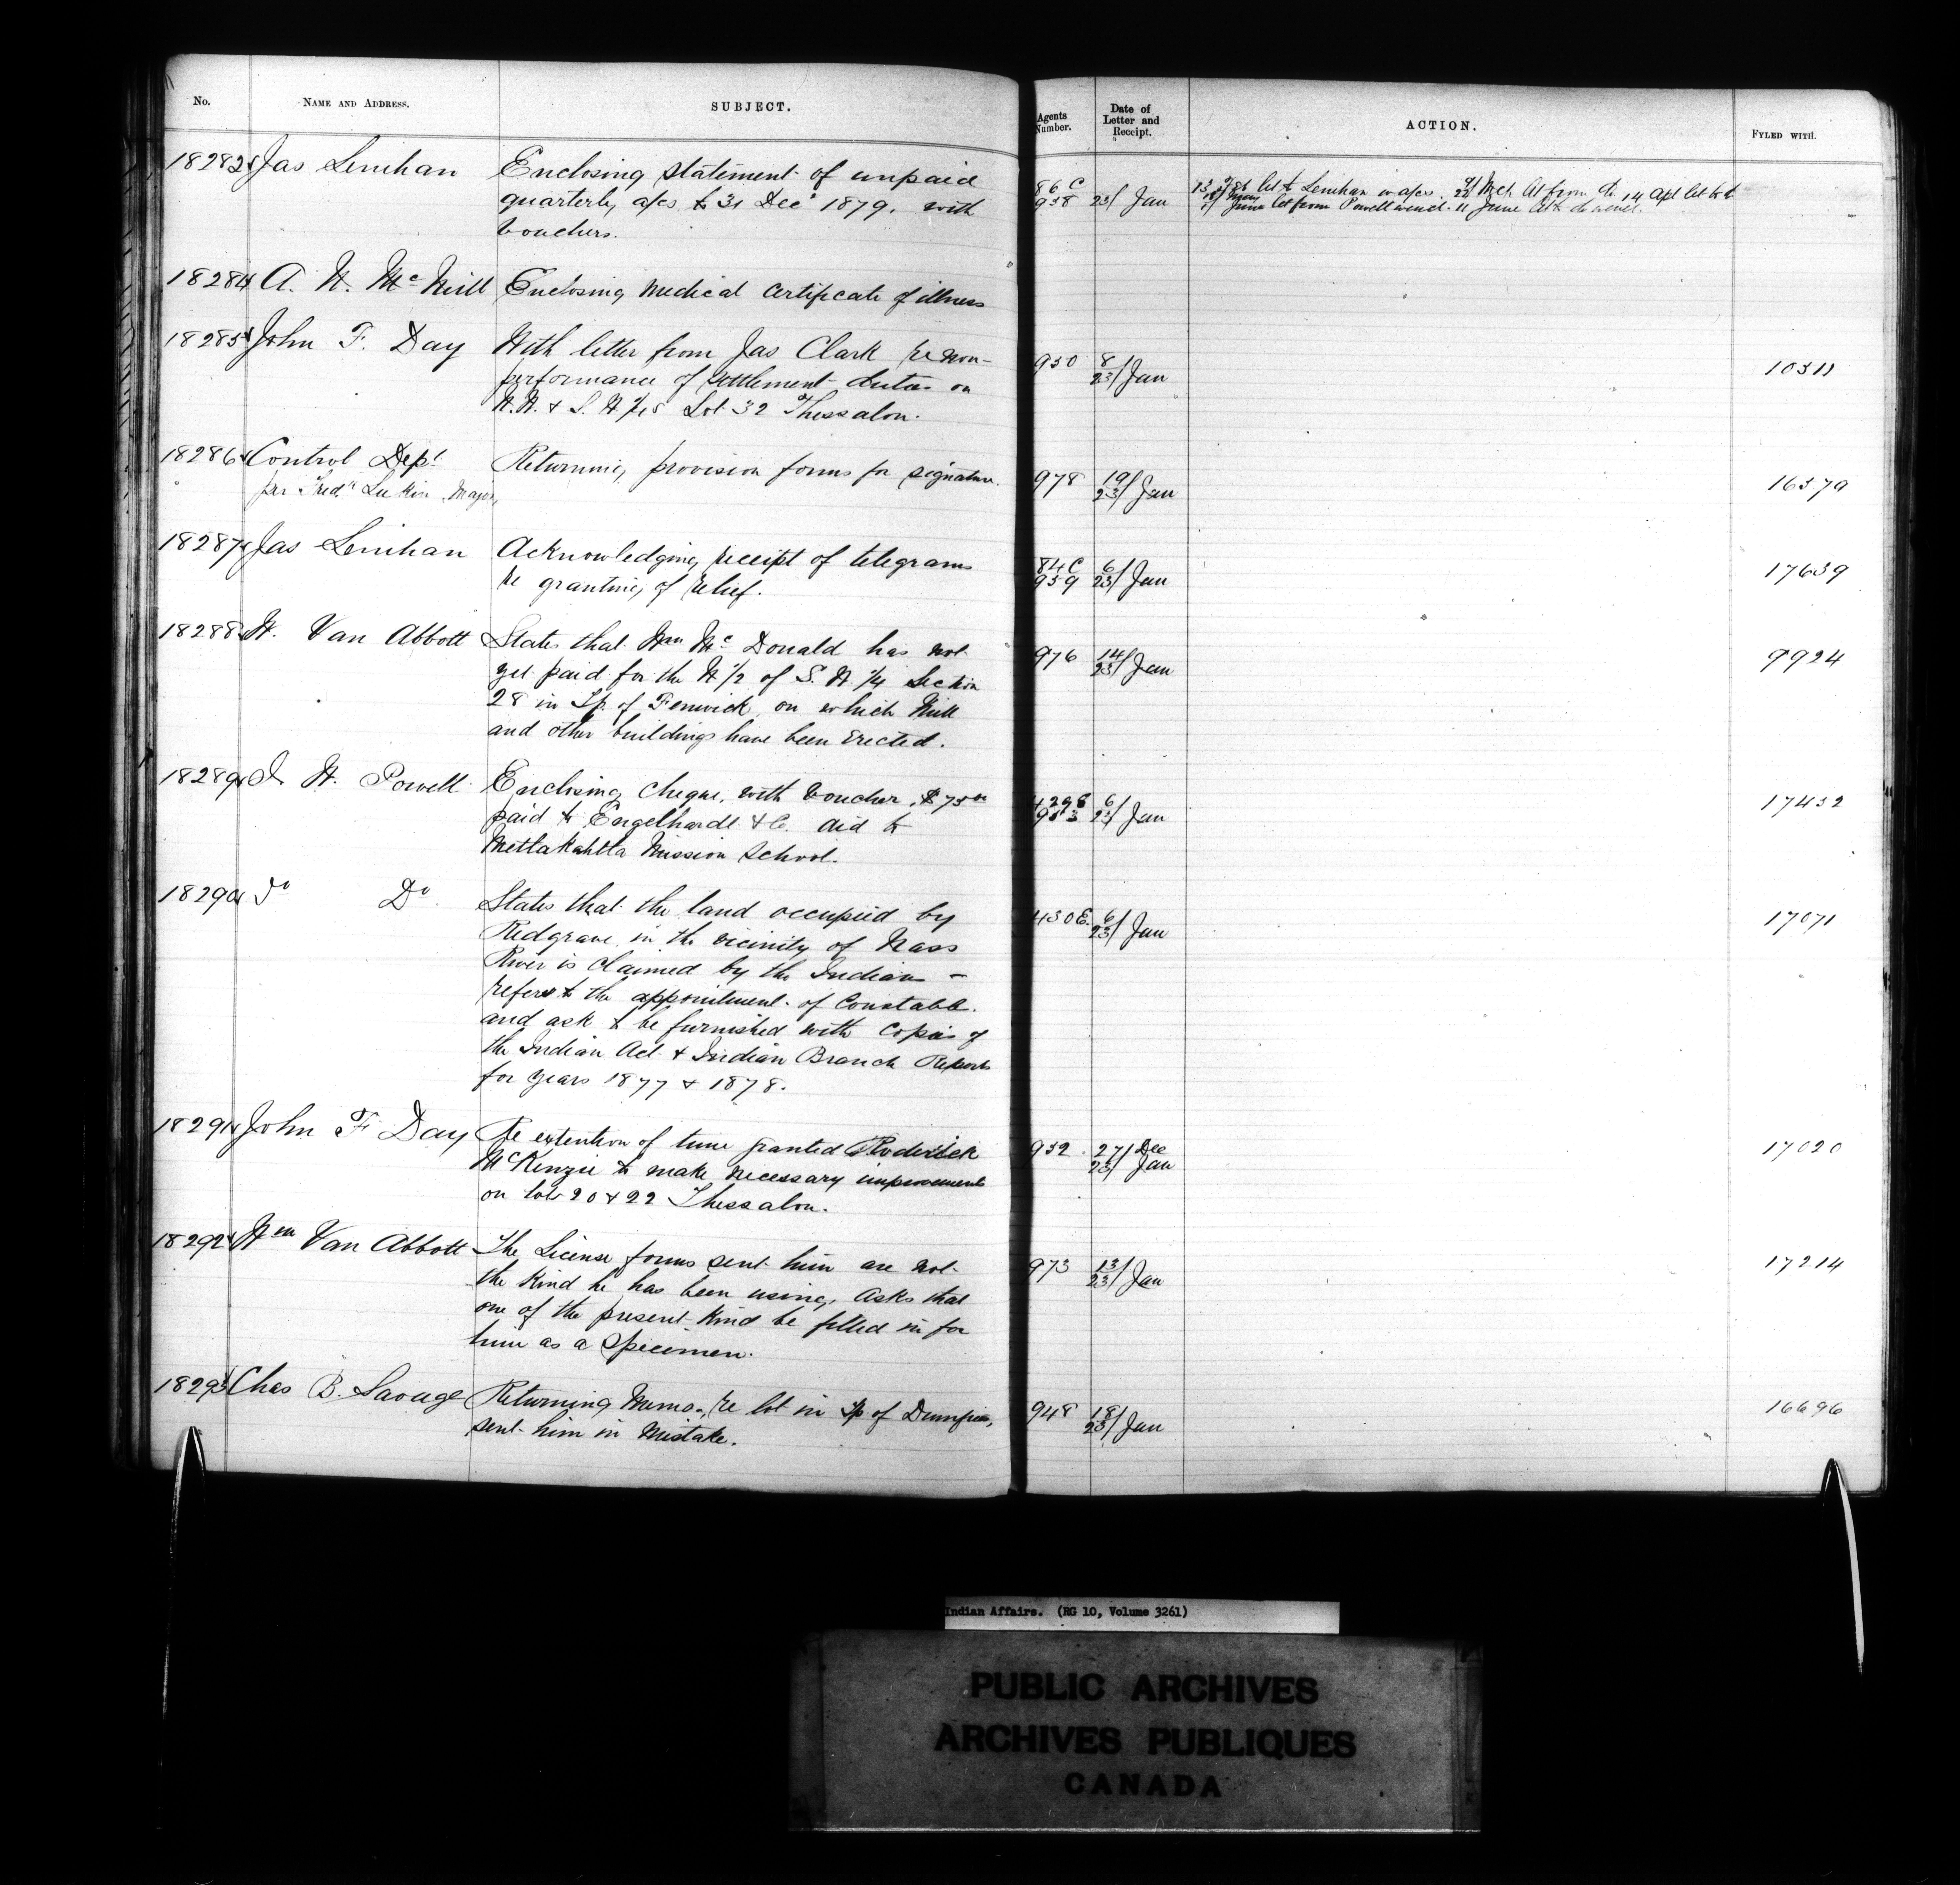 No. NAME AND ADDRESS. SUBJECT. Agents Number. Date of Letter and Receipt. ACTION. FYLED WITH.
18282 Jas Lenihan Enclosing statement of unpaid
quarterly a/cs to 31 Decr 1879. with
Vouchers.
86 C
958 23/ Jan
let to Lenihan w a/cs. Mch let from do 14 Apl let to
June let from Powell w encl. 11 June let to do w encl.
18284 A. N. McNeill Enclosing Medical Certificate of illness
18285 John F. Day With letter from Jas Clark re non-
performance of Settlement duties on
N.W. & S.W. 1/4s Lot 32 Thessalon.
950 8/
23/ Jan 10311
18286 Control Dept Returning provision forms for signature.
per Fredk Lukin, Major,
978 19/
23/ Jan 16379
18287 Jas Lenihan Acknowledging receipt of telegrams
re granting of relief.
84 C 6/
959 23/ Jan 17639
18288 W. Van Abbott States that Wm McDonald has not
yet paid for the W 1/2 of S.W. 1/4 Section
28 in Tp. of Fenwick, on which Mill
and other buildings have been erected.
976 14/
23/ Jan 9924
18289 I. W. Powell Enclosing Cheque, with Voucher, $75 00
paid to Engelhardt & Co. aid to
Metlakahtla Mission School.
429 E 6/
953 23/ Jan 17432
18290 Do Do States that the land occupied by
Redgrave in the vicinity of Nass
River is claimed by the Indians —
refers to the appointment of Constable.
and ask to be furnished with copies of
the Indian Act & Indian Branch Reports
for years 1877 & 1878.
430 E. 6/
23/ Jan 17071
18291 John F. Day Re extention of time granted Roderick
McKenzie to make necessary improvements
on lots 20 & 22 Thessalon.
952 27/ Dec
23/ Jan 17020
18292 Wm Van Abbott The License forms sent him are not
the kind he has been using, asks that
one of the present kind be filled in for
him as a Specimen.
973 13/
23/ Jan 17214
18293 Chas B. Savage Returning Memo. re lot in Tp of
sent him in mistake.
948 18/
23/ Jan 16696
Indian Affairs. (RG 10, Volume 3261)
PUBLIC ARCHIVES
ARCHIVES PUBLIQUES
CANADA